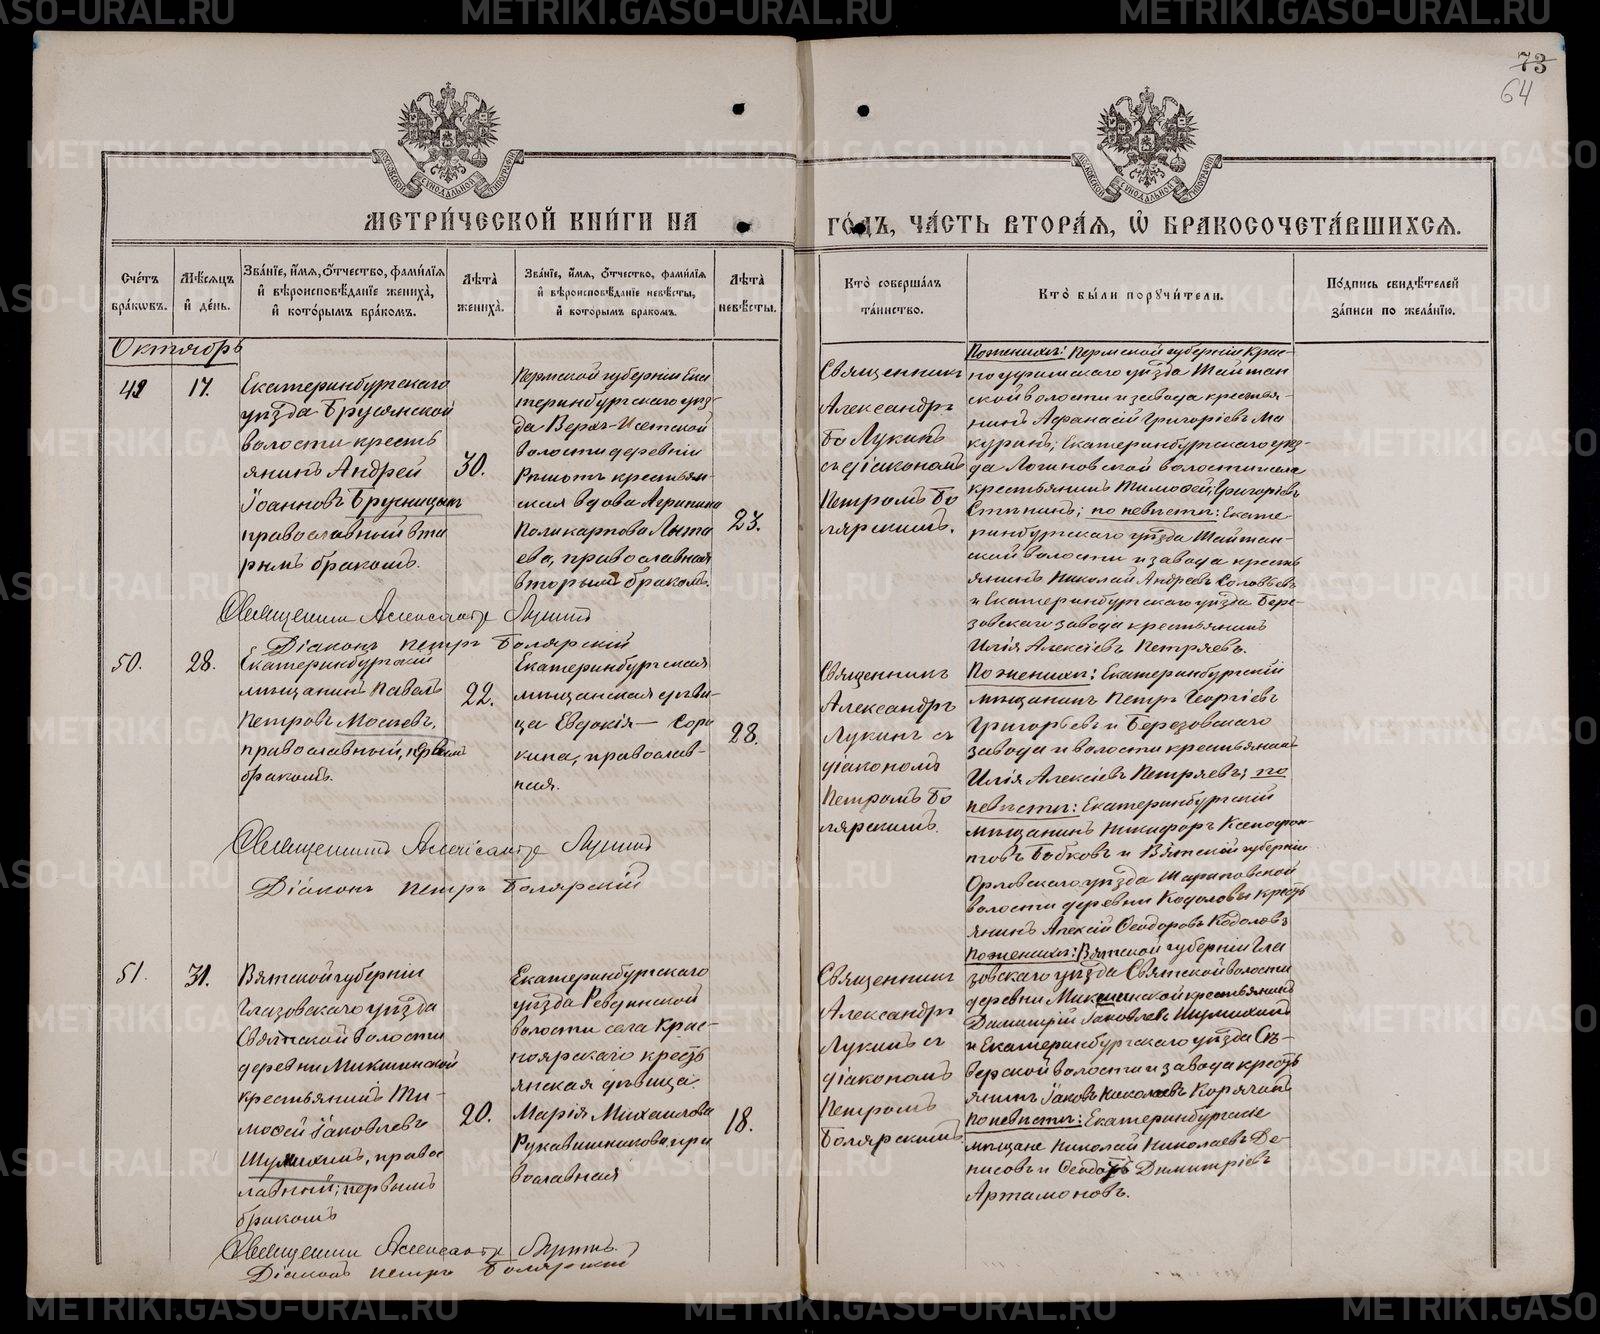 METRIKI.GASO-URAL.RU
73
64
МОСКОВСКОЙ СѴНОДАЛЬНОЙ ТИПОГРАФІИ
МОСКОВСКОЙ СѴНОДАЛЬНОЙ ТИПОГРАФІИ
МЕТРИ́ЧЕСКОЙ КНИ́ГИ НА
ГО́ДЪ, ЧА́СТЬ ВТОРА́Я, Ѡ҆ БРАКОСОЧЕТА́ВШИХСЯ.
Сче́тъ бра́ковъ.
Мѣ́сяцъ и҆ де́нь.
Зва́нїе, и҆́мя, ѻ҆́тчество, фами́лїя
и҆ вѣроисповѣ́данїе жениха̀,
и҆ кото́рымъ бра́комъ.
Лѣ́та жениха̀.
Зва́нїе, и҆́мя, ѻ҆́тчество, фами́лїя
и҆ вѣроисповѣ́данїе невѣ́сты,
и҆ которымъ бракомъ.
Лѣ́та невѣ́сты.
Кто̀ соверша́лъ
та́инство.
Кто̀ бы́ли порꙋчи́тели.
По́дпись свидѣ́телей
за́писи по жела́нїю.
Октябрь
49
17.
Екатеринбургскаго
уѣзда Брусянской
волости кресть
янинъ Андрей
Іоанновъ Брусницынъ
православный вто
рымъ бракомъ.
30.
Пермской губерніи Ека
теринбургскаго уѣз-
да Верхъ-Исетской
волости деревни
Рѣшотъ крестьян-
ская вдова Агрипина
Поликарпова
православная
вторымъ бракомъ.
23.
Священникъ
Александръ
Лукинъ
съ діакономъ
Петромъ Бо
лярскимъ.
По женихѣ: Пермской губерніи Крас-
ноуфимскаго уѣзда Шайтан
ской волости и завода крестья-
нинъ Афанасій Григоріевъ Ма
куринъ; Екатеринбургскаго уѣз
да Логиновской волости и села
крестьянинъ Тимофей Григоріевъ
по невѣстѣ: Екате
ринбургскаго уѣзда Шайтан-
ской волости и завода кресть
янинъ Николай Андреевъ Соловьевъ
и Екатеринбургскаго уѣзда Бере-
зовскаго завода крестьянинъ
Илія Алексіевъ Петряевъ.
Священникъ Александръ Лукинъ
Діаконъ Петръ Болярскій
50.
28.
Екатеринбургскій
мѣщанинъ Павелъ
Петровъ
православный, первымъ
бракомъ.
22.
Екатеринбургская
мѣщанская дѣви-
ца Евдокія — Соро
кина, православ-
ная.
28.
Священникъ
Александръ
Лукинъ съ
діакономъ
Петромъ Бо
лярскимъ.
По женихѣ: Екатеринбургскій
мѣщанинъ Петръ Георгіевъ
Григорьевъ и Березовскаго
завода и волости крестьянинъ
Илія Алексіевъ Петряевъ; по
невѣстѣ: Екатеринбургскій
мѣщанинъ Никифоръ Ксенофон-
товъ Бобковъ и Вятской губерніи
Орловскаго уѣзда
волости деревни Кодоловы кресть
янинъ Алексій Ѳеодоровъ Кодоловъ
Священникъ Александръ Лукинъ
Діаконъ Петръ Болярскій
51.
31.
Вятской губерніи
Глазовскаго уѣзда
Святской волости
деревни Микшинской
крестьянинъ Ти-
мофей Іаковлевъ
Шумихинъ, правос
лавный; первымъ
бракомъ
20.
Екатеринбургскаго
уѣзда Ревдинской
волости села Крас-
ноярскаго кресть
янская дѣвица
Марія Михаилова
Рукавишникова, пра
вославная
18.
Священникъ
Александръ
Лукинъ съ
діакономъ
Петромъ
Болярскимъ.
По женихѣ: Вятской губерніи Гла
зовскаго уѣзда Святской волости
деревни Микшинской крестьянинъ
Димитрій Іаковлевъ Шумихинъ
и Екатеринбургскаго уѣзда Сѣ-
верской волости и завода кресть
янинъ Іаковъ Николаевъ Корякинъ
По невѣстѣ: Екатеринбургскіе
мѣщане Николай Николаевъ Де-
нисовъ и Ѳеодоръ Димитріевъ
Артамоновъ.
Священникъ Александръ Лукинъ
Діаконъ Петръ Болярскій